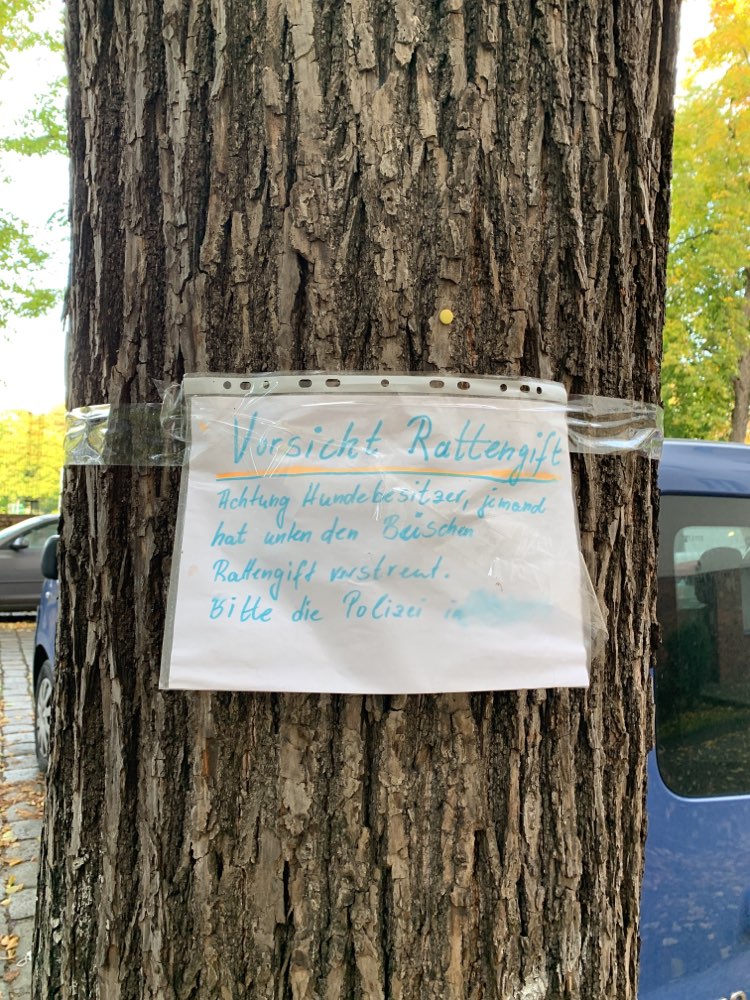 Vorsicht Rattengift
Achtung Hundebesitzer, jemand
hat unter den Büschen
Rattengift verstreut.
Bitte die Polizei